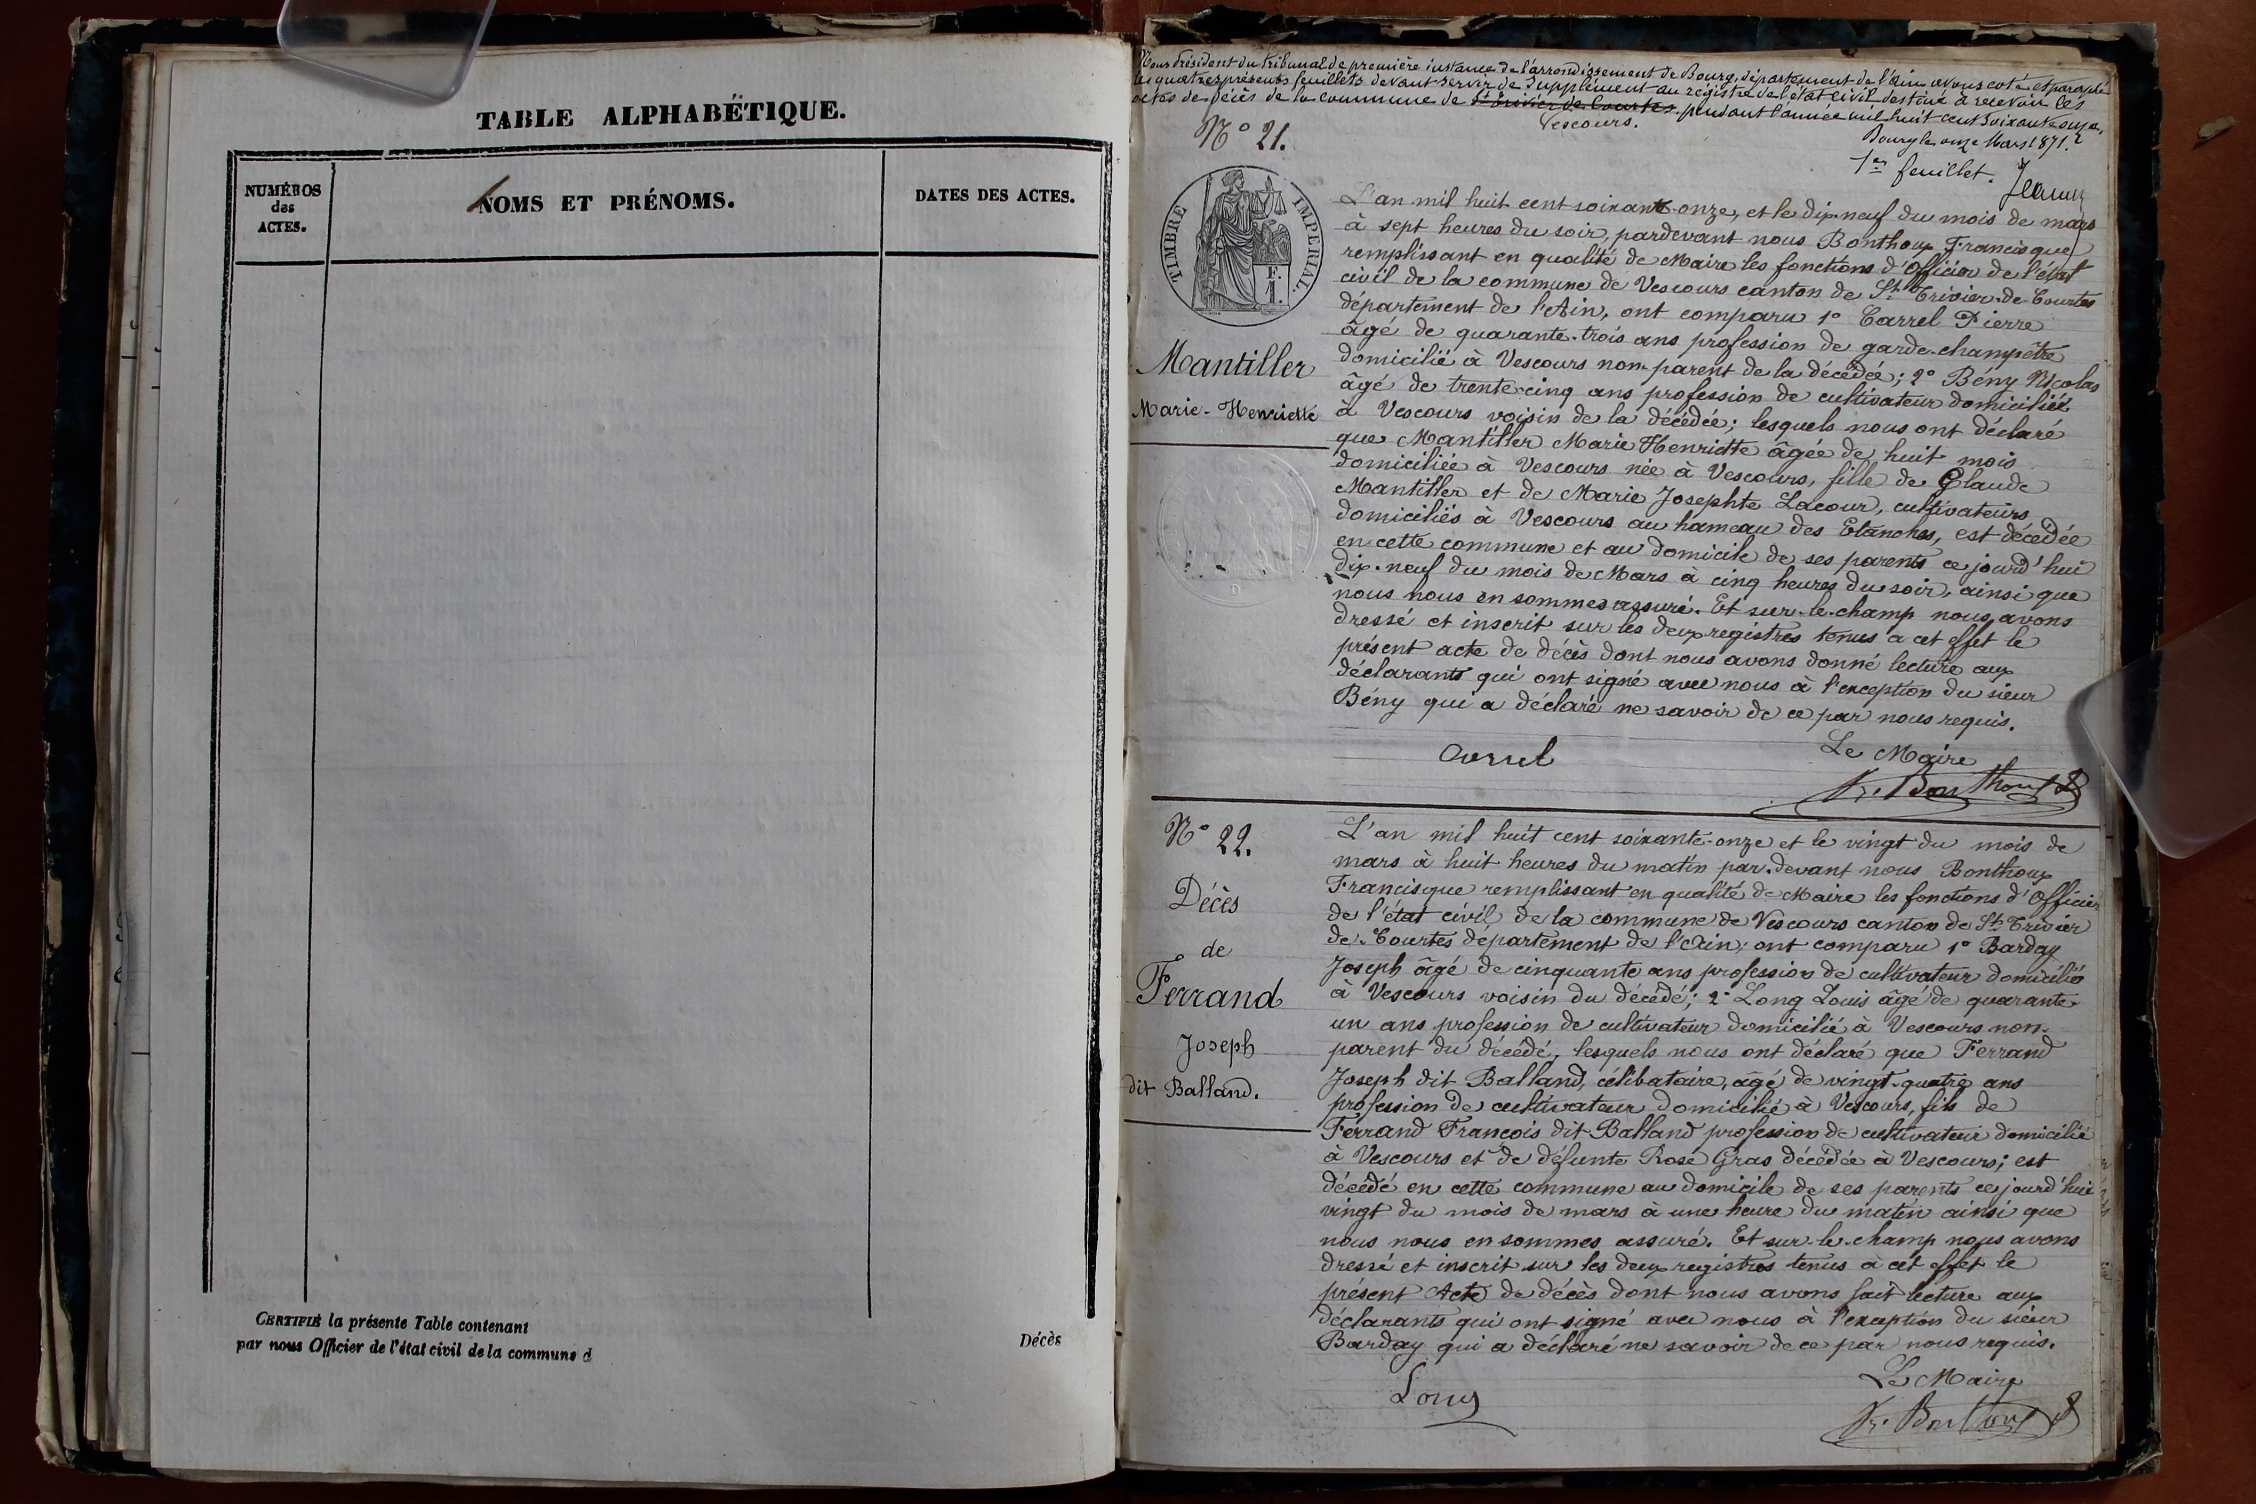 TABLE ALPHABËTIQUE.
NUMÉROS
des
ACTES.
NOMS ET PRÉNOMS.
DATES DES ACTES.
CERTIFIÉ la présente Table contenant
Décès
par nous Officier de l'état civil de la commune d
Nous Président du tribunal de première instance de l'arrondissement de Bourg, département de l'Ain avons coté et paraphé
les quatre présents feuillets devant servir de Supplément au régistre de l'état civil destiné à recevoir les
actes de décès de la commune de St Trivier de Courtes pendant l'année mil huit cent soixante onze,
Vescours.
Bourg le onze Mars 1871.
1er feuillet.
N° 21.
TIMBRE IMPERIAL.
F.
1.
Mantiller
Marie-Henriette
L'an mil huit cent soixante-onze, et le dix neuf du mois de mars
à sept heures du soir, pardevant nous Bonthoux Francisque
remplissant en qualité de Maire les fonctions d'Officier de l'état
civil de la commune de Vescours canton de St Trivier-de-Courtes
département de l'Ain, ont comparu 1° Carrel Pierre
âgé de quarante-trois ans profession de garde-champêtre
domicilié à Vescours non-parent de la décédée; 2° Bény Nicolas
âgé de trente-cinq ans profession de cultivateur domicilié
à Vescours voisin de la décédée; lesquels nous ont déclaré
que Mantiller Marie Henriette âgée de huit mois
domiciliée à Vescours née à Vescours, fille de Claude
Mantiller et de Marie Josephte Lacour, cultivateurs
domiciliés à Vescours au hameau des Etanches, est décédée
en cette commune et au domicile de ses parents ce jourd'hui
dix-neuf du mois de Mars à cinq heures du soir, ainsi que
nous nous en sommes assuré. Et sur-le-champ nous avons
dressé et inscrit sur les deux registres tenus à cet effet le
présent acte de décès dont nous avons donné lecture aux
déclarants qui ont signé avec nous à l'exception du sieur
Bény qui a déclaré ne savoir de ce par nous requis.
Le Maire
Fr. Bonthoux
N° 22.
Décès
de
Ferrand
Joseph
dit Balland.
L'an mil huit cent soixante-onze et le vingt du mois de
mars à huit heures du matin par-devant nous Bonthoux
Francisque remplissant en qualité de Maire les fonctions d'Officier
de l'état civil de la commune de Vescours canton de St Trivier
de-Courtes département de l'Ain; ont comparu 1° Barday
Joseph âgé de cinquante ans profession de cultivateur domicilié
à Vescours voisin du décédé; 2° Long Louis âgé de quarante-
un ans profession de cultivateur domicilié à Vescours non-
parent du décédé, lesquels nous ont déclaré que Ferrand
Joseph dit Balland, célibataire, âgé de vingt-quatre ans
profession de cultivateur domicilié à Vescours, fils de
Ferrand François dit Balland profession de cultivateur domicilié
à Vescours et de défunte Rose Gras décédée à Vescours; est
décédé en cette commune au domicile de ses parents ce jourd'hui
vingt du mois de mars à une heure du matin ainsi que
nous nous en sommes assuré. Et sur-le-champ nous avons
dressé et inscrit sur les deux registres tenus à cet effet le
présent Acte de décès dont nous avons fait lecture aux
déclarants qui ont signé avec nous à l'exception du sieur
Barday qui a déclaré ne savoir de ce par nous requis.
Le Maire
Long
Fr. Bonthoux